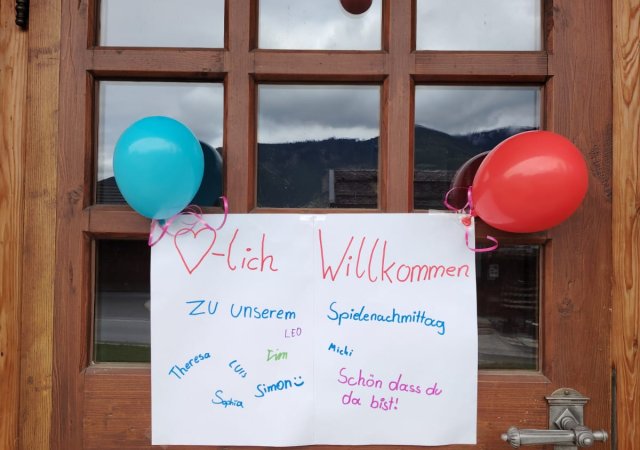 ♡-lich Willkommen
zu unserem Spielenachmittag
LEO
Tim
Michi
Theresa
Luis
Simon
Sophia
Schön dass du
da bist!